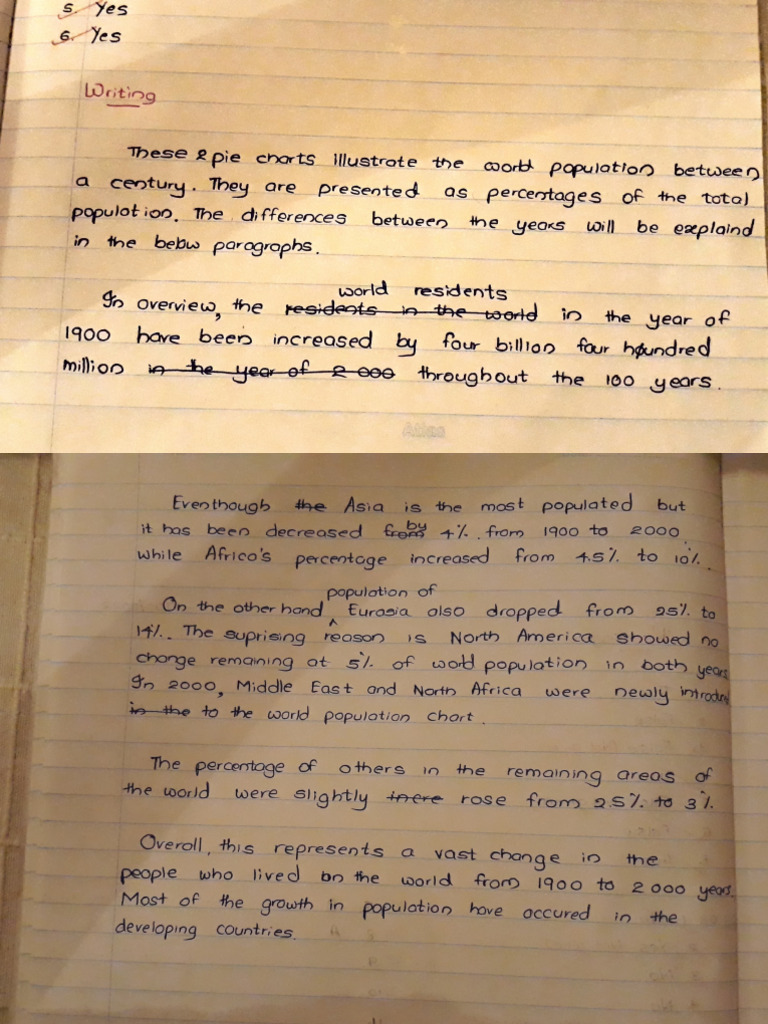 5. Yes
6. Yes
Writing
These 2 pie charts illustrate the world population between
a century. They are presented as percentages of the total
population. The differences between the years will be explaind
in the below paragraphs.
world residents
In overview, the residents in the world in the year of
1900 have been increased by four billion four hundred
million in the year of 2 000 throughout the 100 years.
Atlas
Eventhough the Asia is the most populated but
by
it has been decreased from 4%. from 1900 to 2000
while Africa's percentage increased from 4.5% to 10%.
population of
On the other hand ^ Eurasia also dropped from 25% to
14%. The suprising reason is North America showed no
change remaining at 5% of world population in both years
In 2000, Middle East and North Africa were newly introduced
in the to the world population chart.
The percentage of others in the remaining areas of
the world were slightly there rose from 2.5% to 3%.
Overall, this represents a vast change in the
people who lived on the world from 1900 to 2 000 years.
Most of the growth in population have accured in the
developing countries.